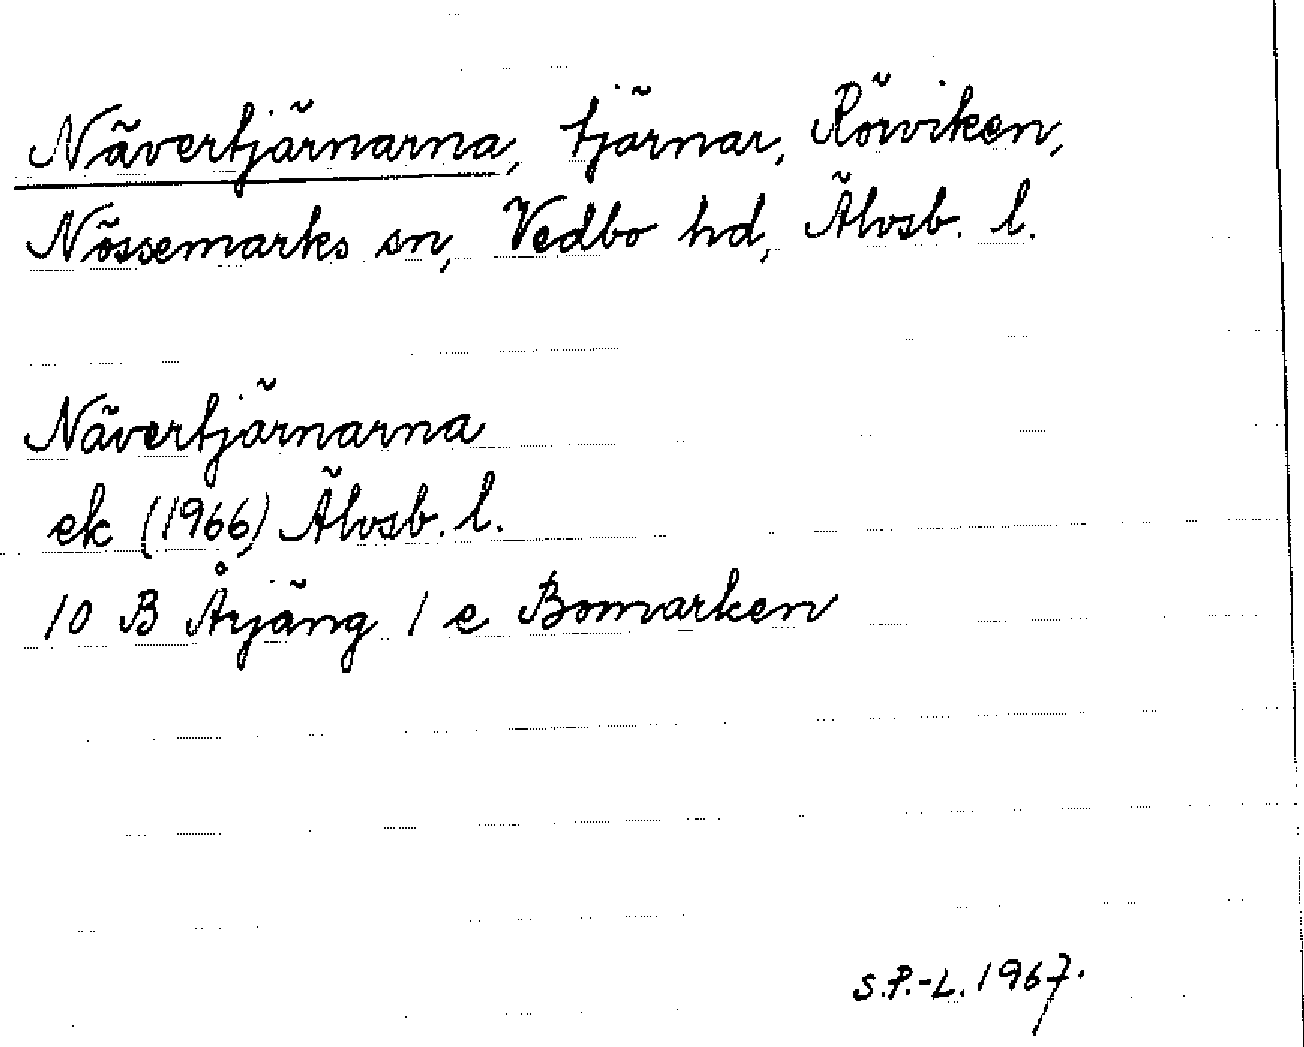 Nävertjärnarna, tjärnar, Rörviken,
Nössemarks sn, Vedbo hd, Älvsb. l.
Nävertjärnarna
ek (1966) Älvsb. l.
10 B Årjäng 1 e Bomarken
S.P.-L. 1967.